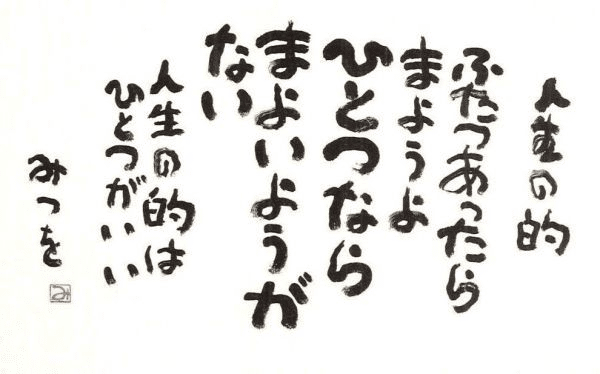 人生の的
ふたつあったら
まようよ
ひとつなら
まよいようが
ない
人生の的は
ひとつがいい
みつを
み